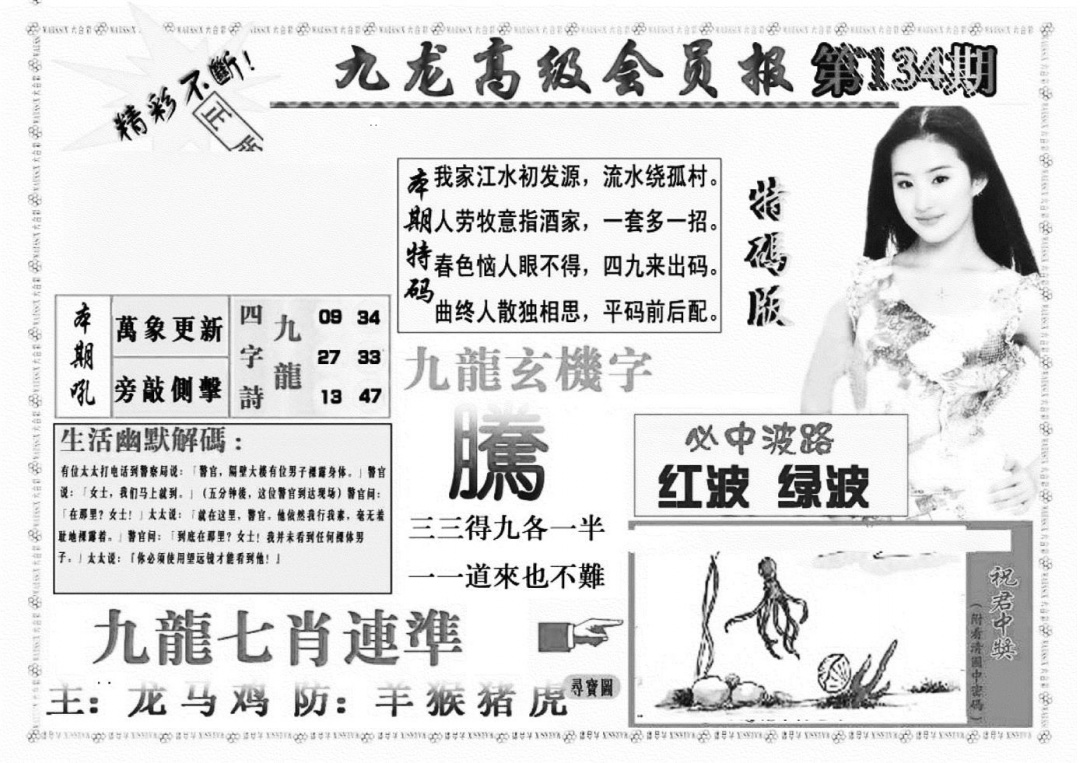 精彩不斷!
正版
九龙高级会员报 第134期
本期特码
我家江水初发源，流水绕孤村。
人劳牧意指酒家，一套多一招。
春色恼人眼不得，四九来出码。
曲终人散独相思，平码前后配。
特碼版
本期吼
萬象更新
旁敲側擊
四字詩
九龍
09 34
27 33
13 47
九龍玄機字
騰
三三得九各一半
一一道來也不難
生活幽默解碼：
有位太太打电话到警察局说：「警官，隔壁大楼有位男子裸露身体。」警官
说：「女士，我们马上就到。」（五分钟後，这位警官到达现场）警官问：
「在那里？女士！」太太说：「就在这里，警官，他依然我行我素，毫无羞
耻地裸露着。」警官问：「到底在那里？女士！我并未看到任何裸体男
子。」太太说：「你必须使用望远镜才能看到他！」
必中波路
红波 绿波
九龍七肖連準
主：龙马鸡 防：羊猴猪虎
尋寶圖
祝君中獎
（附看清圖中密碼）